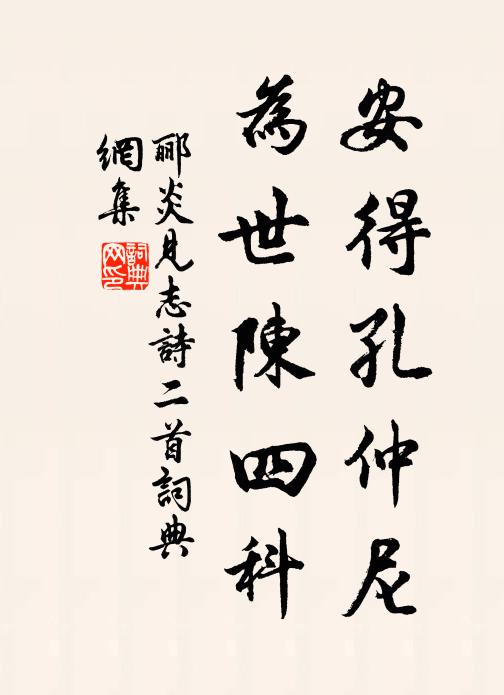 安得孔仲尼
為世陳四科
郦炎見志詩二首詞典
網集
詞典
网印